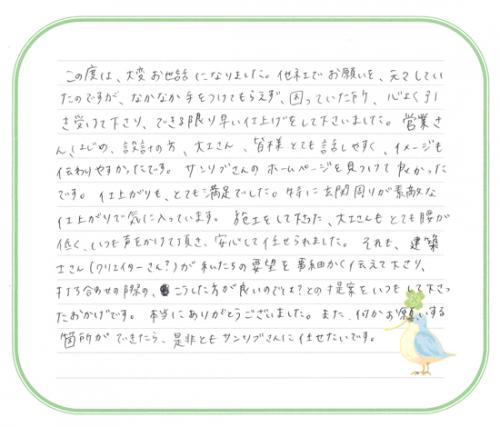 この度は、大変お世話になりました。他社でお願いを、元々してい
たのですが、なかなか手をつけてもらえず、困っていた所、心よく引
き受けて下さり、できる限り早い仕上げをして下さいました。営業さ
ん、はじめ、設計の方、大工さん、皆様とても話しやすく、イメージも
伝わりやすかったです。サンリブさんのホームページを見つけて良かった
です。仕上がりも、とても満足でした。特に玄関周りが素敵な
仕上がりで気に入っています。施工をして下さった、大工さんもとても腰が
低く、いつも声をかけて頂き、安心して任せられました。それも、建築
士さん(クリエイターさん?)が私たちの要望を事細かく伝えて下さり、
打ち合わせの際の、こうした方が良いのでは?との提案をいつもして下さっ
たおかげです。本当にありがとうございました。また、何かお願いする
箇所ができたら、是非ともサンリブさんに任せたいです。